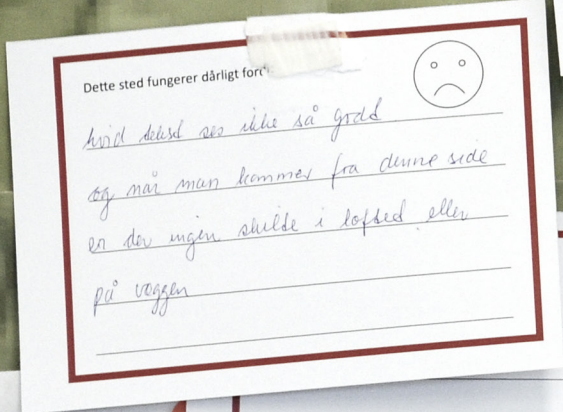 Dette sted fungerer dårligt fordi
hvid tekst ses ikke så godt
og når man kommer fra denne side
er der ingen skilte i loftet eller
på væggen